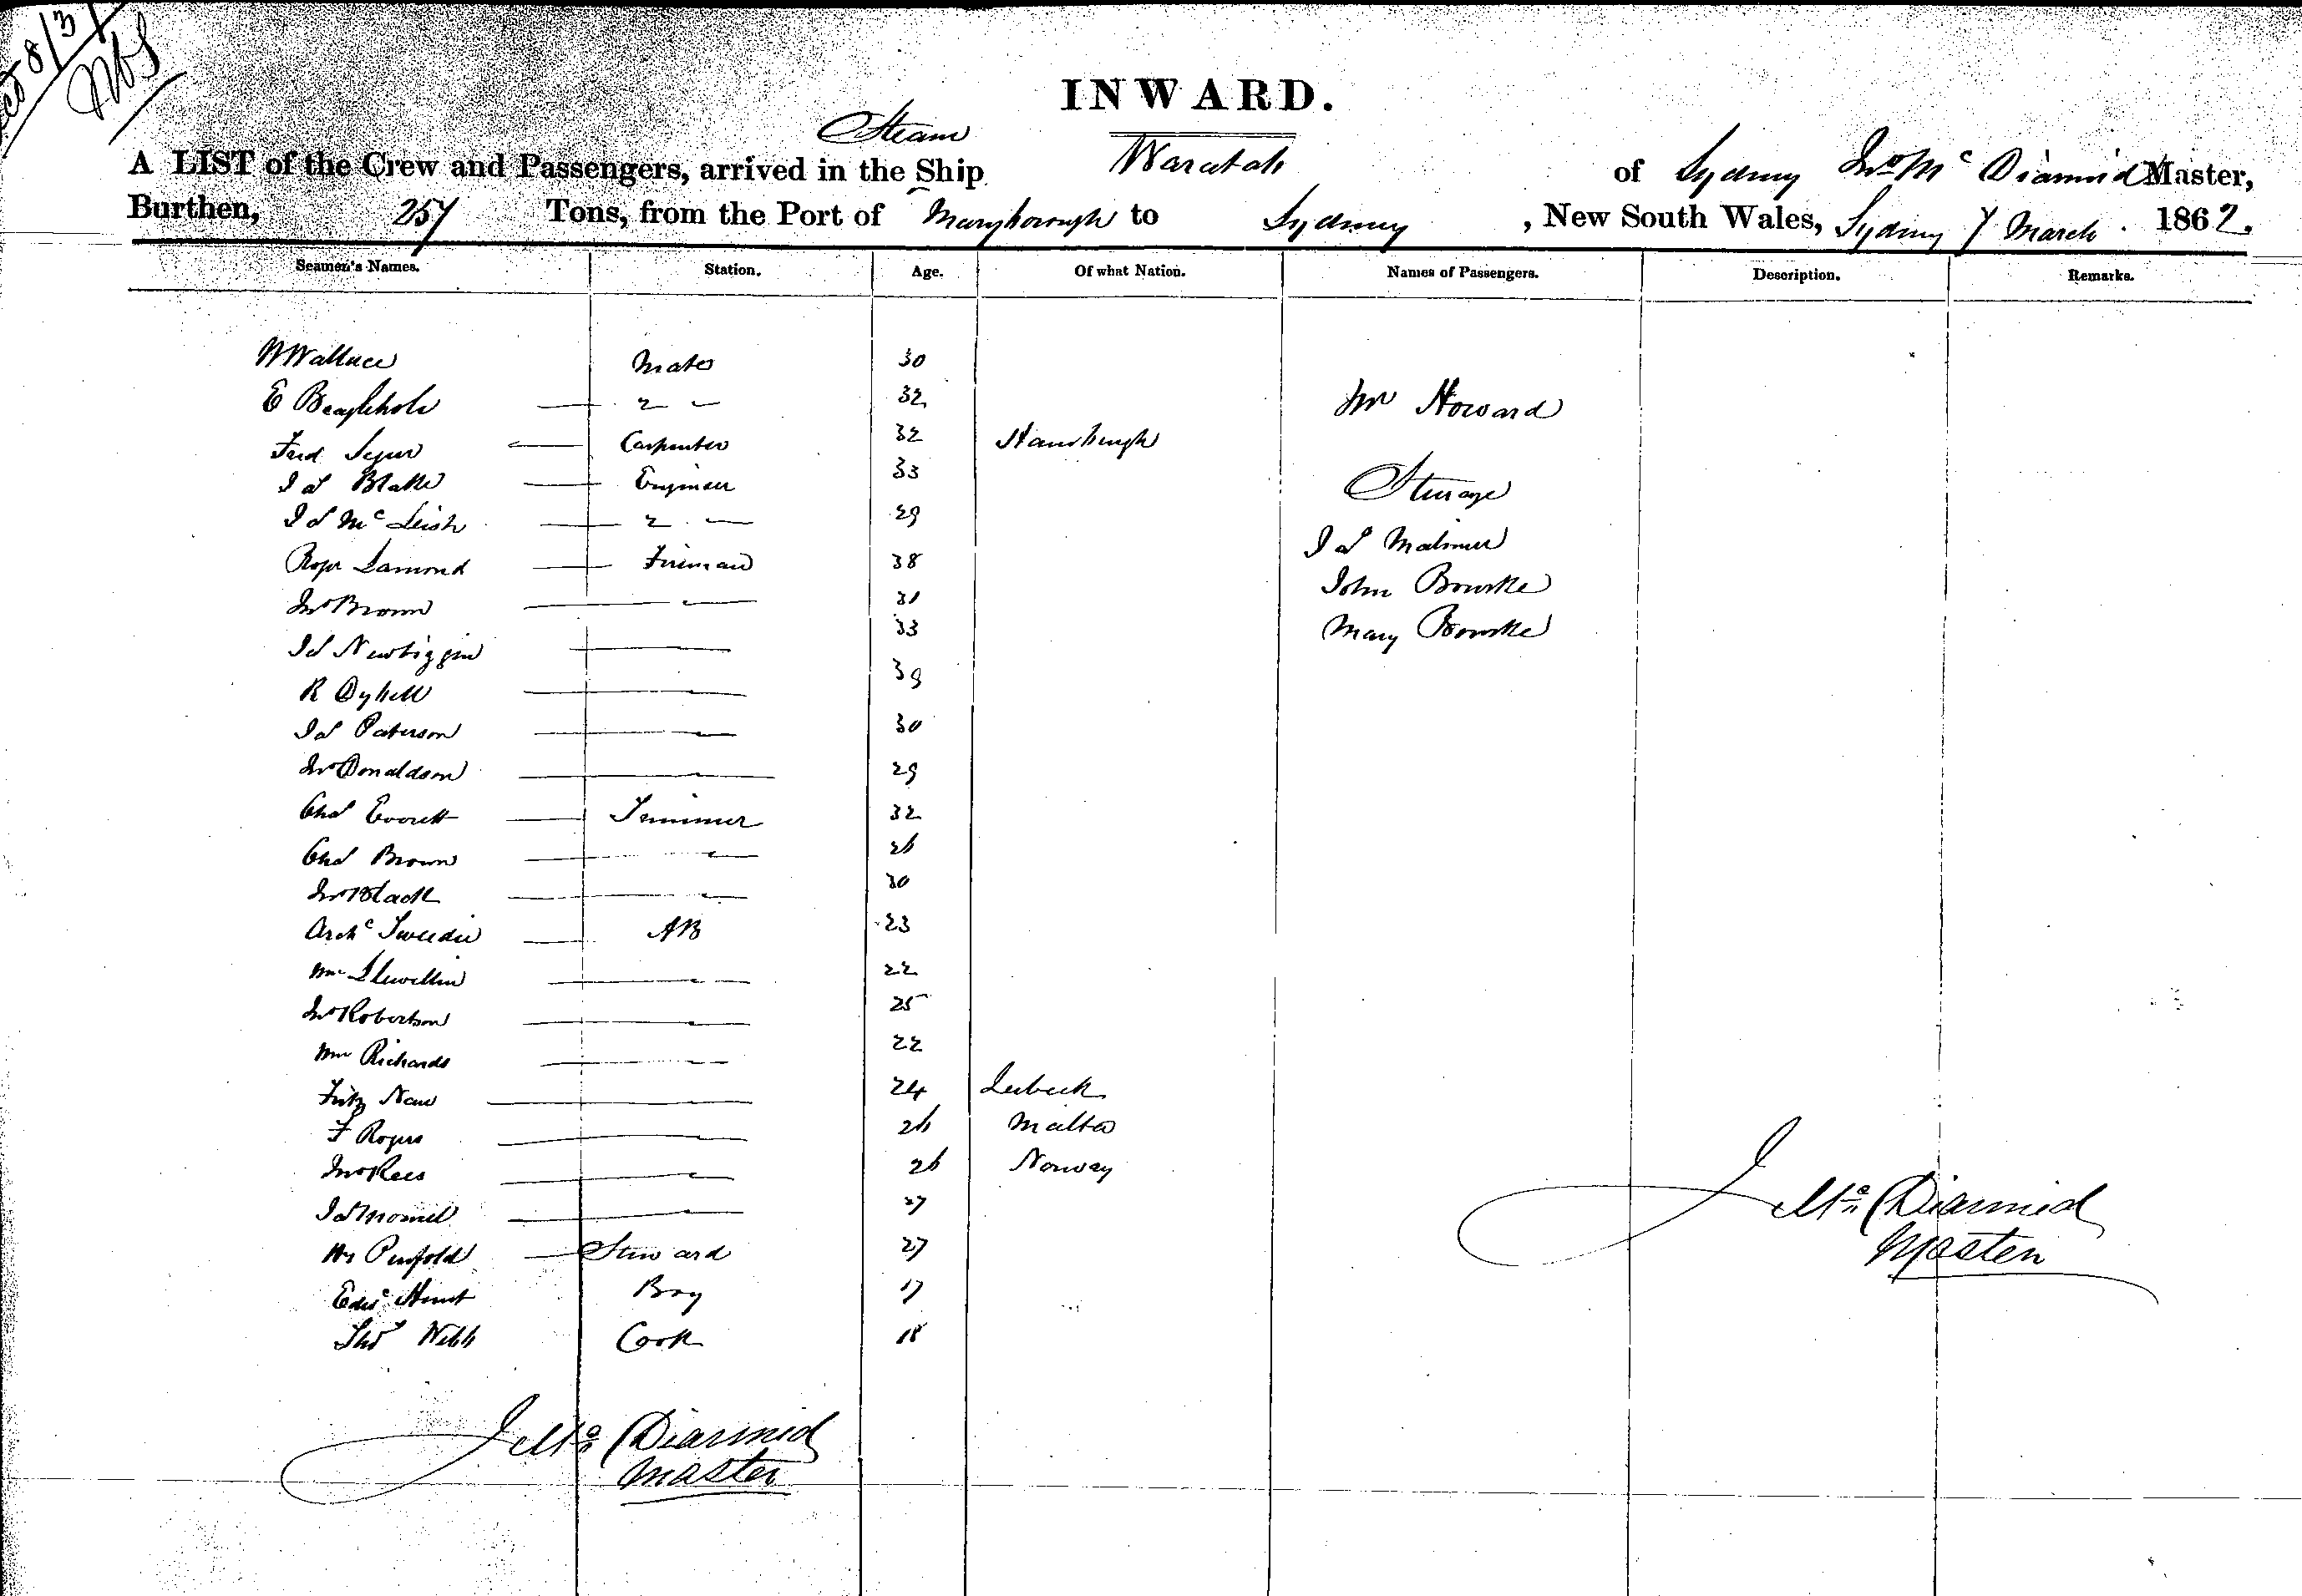 INWARD.
Steam
A LIST of the Crew and Passengers, arrived in the Ship Waratah of Sydney Jno Mc Diarmid Master,
Burthen, 257 Tons, from the Port of Maryborough to Sydney, New South Wales, Sydney 7 March 1862.
Seamen's Names. Station. Age. Of what Nation. Names of Passengers. Description. Remarks.
W Wallace Mate 30
E Beaglehole 2 32 Mr Howard
Ferd Carpenter 32 Hamburgh
Jas Blake Engineer 33 Steerage
Jas McLeish 2 29 Jas
Roger Lamond Fireman 38 John Bourke
Jno Brown 31 Mary Bourke
Jas Newbiggin 33
R 39
Jas Paterson 30
Jno Donaldson 29
Chas Everett Trimmer 32
Chas Brown 26
Jno Black 30
Archd Tweedie AB 23
Wm Llewellin 22
Jno Robertson 25
Wm Richards 22
Fritz Nau 24 Lubeck
F Rogers 26 Malta
Jno Rees 26 Norway
Jas 27
Hy Penfold Steward 27
Edwd Hunt Boy 17
Thos Webb Cook 18
J Mc Diarmid
Master
J Mc Diarmid
Master